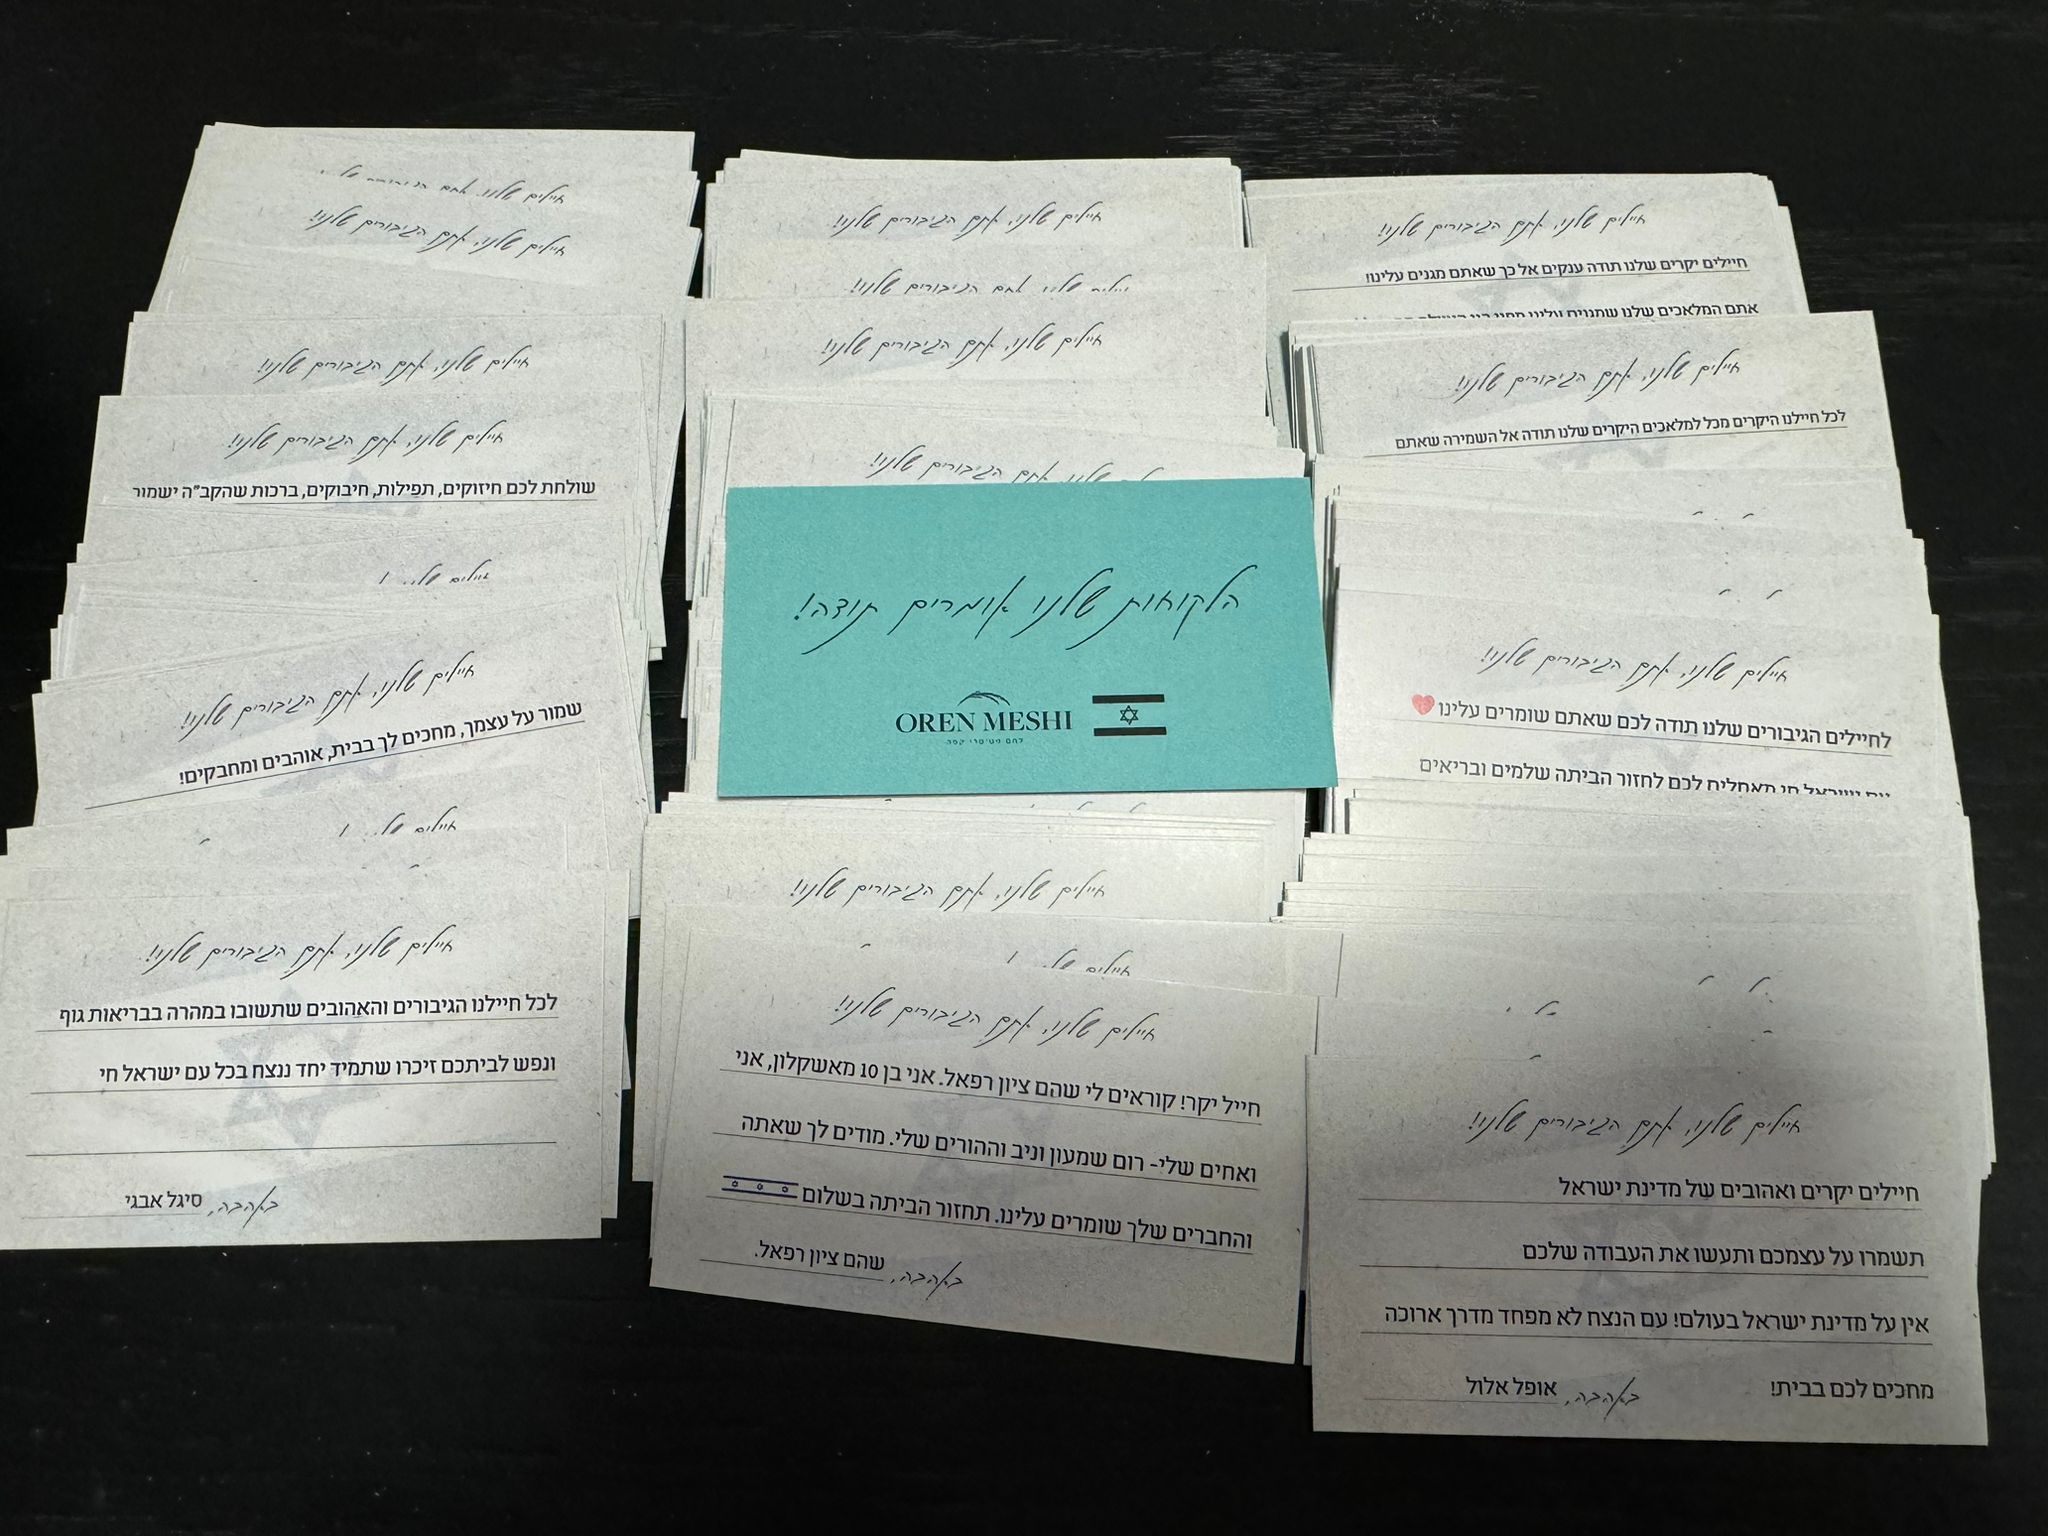 חיילים שלנו, אתם הגיבורים שלנו!
חיילים שלנו, אתם הגיבורים שלנו!
חיילים שלנו, אתם הגיבורים שלנו!
שולחת לכם חיזוקים, תפילות, חיבוקים, ברכות שהקב"ה ישמור
חיילים
חיילים שלנו, אתם הגיבורים שלנו!
שמור על עצמך, מחכים לך בבית, אוהבים ומחבקים!
חיילים
חיילים שלנו, אתם הגיבורים שלנו!
לכל חיילנו הגיבורים והאהובים שתשובו במהרה בבריאות גוף
ונפש לביתכם זיכרו שתמיד יחד ננצח בכל עם ישראל חי
באהבה, סיגל אבגי
חיילים שלנו, אתם הגיבורים שלנו!
אתם הגיבורים שלנו!
חיילים שלנו, אתם הגיבורים שלנו!
אתם הגיבורים שלנו!
הלקוחות שלנו אומרים תודה!
OREN MESHI
לחם פטיסרי קפה
חיילים שלנו, אתם הגיבורים שלנו!
חיילים
חיילים שלנו, אתם הגיבורים שלנו!
חייל יקר! קוראים לי שהם ציון רפאל. אני בן 10 מאשקלון, אני
ואחים שלי- רום שמעון וניב וההורים שלי. מודים לך שאתה
והחברים שלך שומרים עלינו. תחזור הביתה בשלום
באהבה, שהם ציון רפאל.
חיילים שלנו, אתם הגיבורים שלנו!
חיילים יקרים שלנו תודה ענקים אל כך שאתם מגנים עלינו!
אתם המלאכים שלנו שמגנים עלינו
חיילים שלנו, אתם הגיבורים שלנו!
לכל חיילנו היקרים מכל למלאכים היקרים שלנו תודה אל השמירה שאתם
חיילים שלנו, אתם הגיבורים שלנו!
לחיילים הגיבורים שלנו תודה לכם שאתם שומרים עלינו❤️
עם ישראל חי מאחלים לכם לחזור הביתה שלמים ובריאים
חיילים שלנו, אתם הגיבורים שלנו!
חיילים יקרים ואהובים של מדינת ישראל
תשמרו על עצמכם ותעשו את העבודה שלכם
אין על מדינת ישראל בעולם! עם הנצח לא מפחד מדרך ארוכה
מחכים לכם בבית! באהבה, אופל אלול